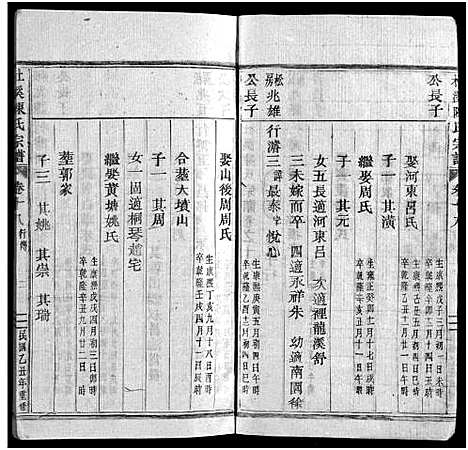 公長子
娶河東呂氏
生康熙戊子三月初一日未時
卒乾隆辛巳四月初四日午時
子一 其潢
繼娶周氏
生雍正癸卯十月十七日戌時
卒乾隆辛亥正月十一日戌時
子一 其元
女五 長適河東呂 次適裡龍溪舒
三未嫁而卒 四適永祥朱 幼適南閣徐
松房 兆雄 行濟三 諱最泰 字悅心
公長子
生康熙庚寅五月初四日午時
卒乾隆乙酉三月初二日午時
娶山後周周氏
生康熙丁亥九月十八日酉時
卒乾隆壬戌四月十一日辰時
合葬大墳山
子一 其滿
女一 適桐琴趙宅
繼娶黃塘姚氏
生康熙戊戌四月初三日卯時
卒乾隆辛丑九月廿二日時
塟郭家
子三 其姚 其崇 其瑞
杜溪陳氏宗譜
卷十八 行傳
民國乙丑年重修